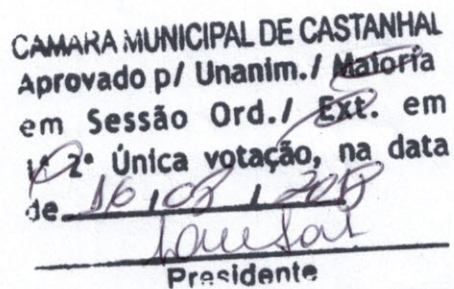 CAMARA MUNICIPAL DE CASTANHAL
Aprovado p/ Unanim./ Maioria
em Sessão Ord./ Ext. em
1ª 2ª Única votação, na data
de 16 / 03 /
Presidente